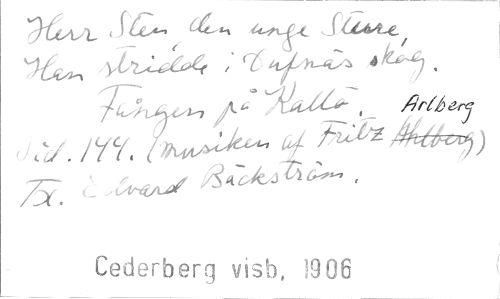 Herr Sten, den unge Sture,
Han stridde i Dufnäs skog.
Fången på Kallö. Arlberg
Sid. 144. (musiken af Fritz Ahlberg)
Tx. Edvard Bäckström.
Cederberg visb, 1906